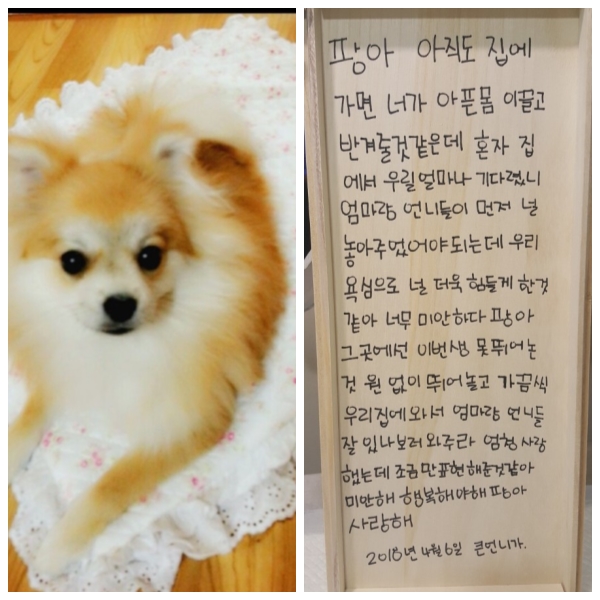 팡아 아직도 집에
가면 너가 아픈몸 이끌고
반겨줄것같은데 혼자 집
에서 우릴얼마나 기다렸니
엄마랑 언니들이 먼저 널
놓아주었어야되는데 우리
욕심으로 널 더욱 힘들게 한것
같아 너무 미안하다 팡아
그곳에선 이번생 못뛰어논
것 원 없이 뛰어놀고 가끔씩
우리집에와서 엄마랑 언니들
잘 있나보러와주라 엄청 사랑
했는데 조금만표현해준것같아
미안해 행복해야해 팡아
사랑해
2018년 4월 6일 큰언니가.